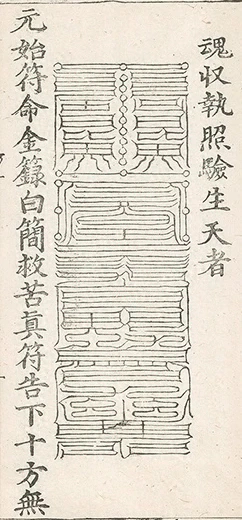 魂収執照驗生天者
元始符命金籙白簡救苦真符告下十方無